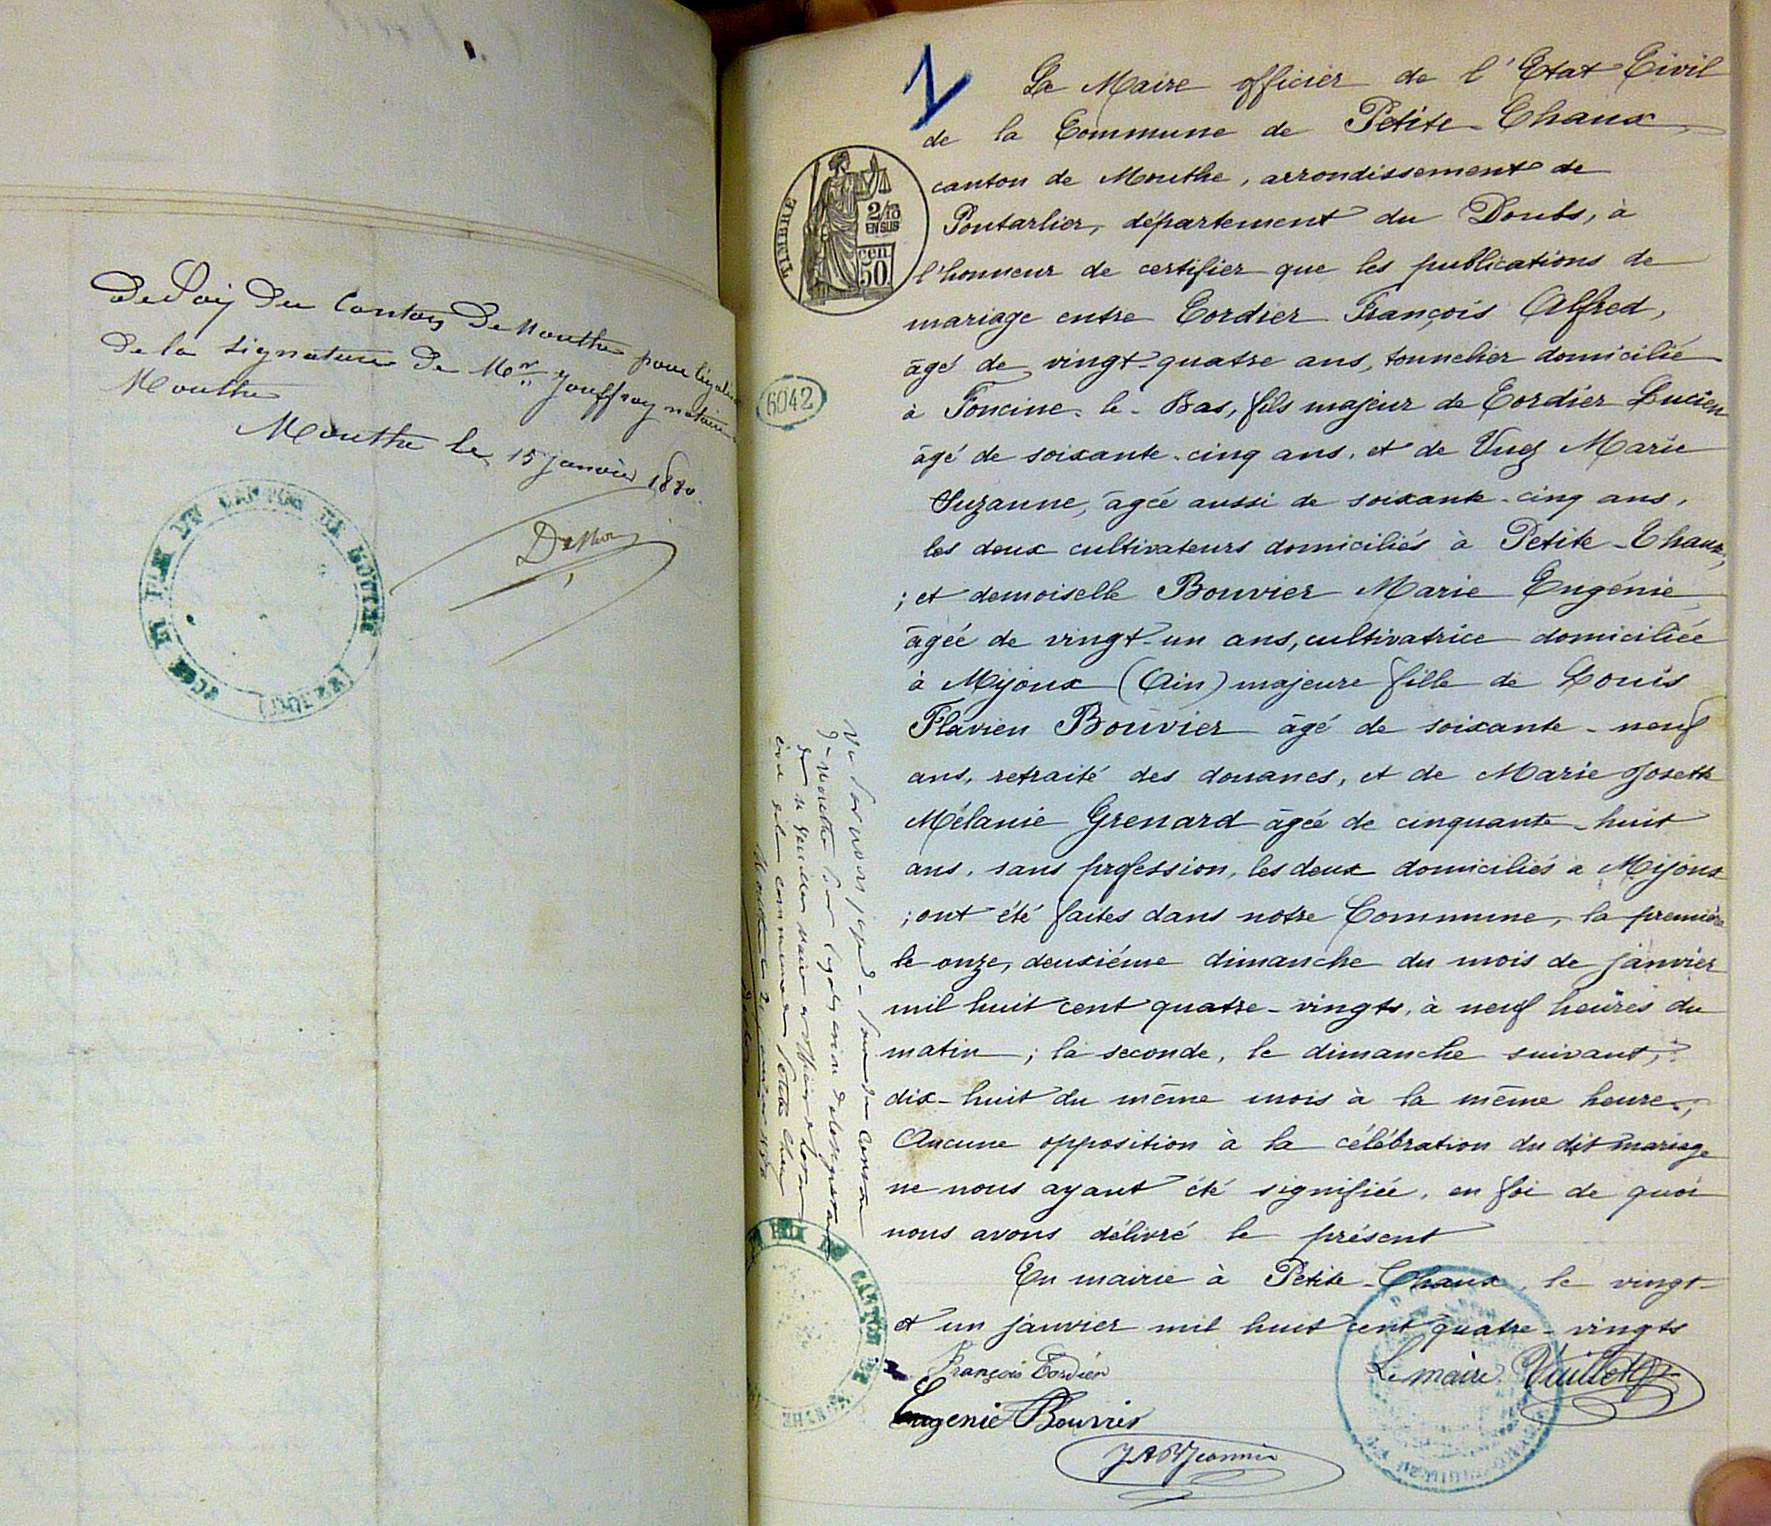 de Paix du Canton de Mouthe pour légali
de la signature de Mr. Jouffroy notaire
Mouthe
Mouthe le 15 janvier 1880.
DU CANTON DE MOUTHE
(DOUBS)
1
Le Maire officier de l'Etat Civil
de la Commune de Petite Chaux,
canton de Mouthe, arrondissement de
TIMBRE
2/10
EN SUS
50 cen
Pontarlier, département du Doubs, à
l'honneur de certifier que les publications de
mariage entre Cordier François Alfred,
âgé de vingt-quatre ans, tonnelier domicilié
6042
à Foncine-le-Bas, fils majeur de Cordier Lucien
âgé de soixante-cinq ans, et de Vuez Marie
Suzanne, âgée aussi de soixante-cinq ans,
les deux cultivateurs domiciliés à Petite-Chaux,
; et demoiselle Bouvier Marie Eugénie
âgée de vingt-un ans, cultivatrice domiciliée
à Mijoux (Ain) majeure fille de Louis
Flavien Bouvier âgé de soixante-neuf
ans, retraité des douanes, et de Marie Josette
Mélanie Grenard âgée de cinquante-huit
ans, sans profession, les deux domiciliés a Mijoux
; ont été faites dans notre Commune, la première
le onze, deuxième dimanche du mois de janvier
mil huit cent quatre-vingts, à neuf heures du
matin ; la seconde, le dimanche suivant,
dix-huit du même mois à la même heure,
Aucune opposition à la célébration du dit mariage
ne nous ayant été signifiée, en foi de quoi
nous avons délivré le présent
En mairie à Petite-Chaux, le vingt-
et un janvier mil huit cent quatre-vingts
François Cordier
Le maire Vuillet
Eugenie Bouvier
Vu par nous juge de paix du Canton
de Mouthe pour légalisation de la signature
civil de la commune de Petite Chaux
DU CANTON DE MOUTHE